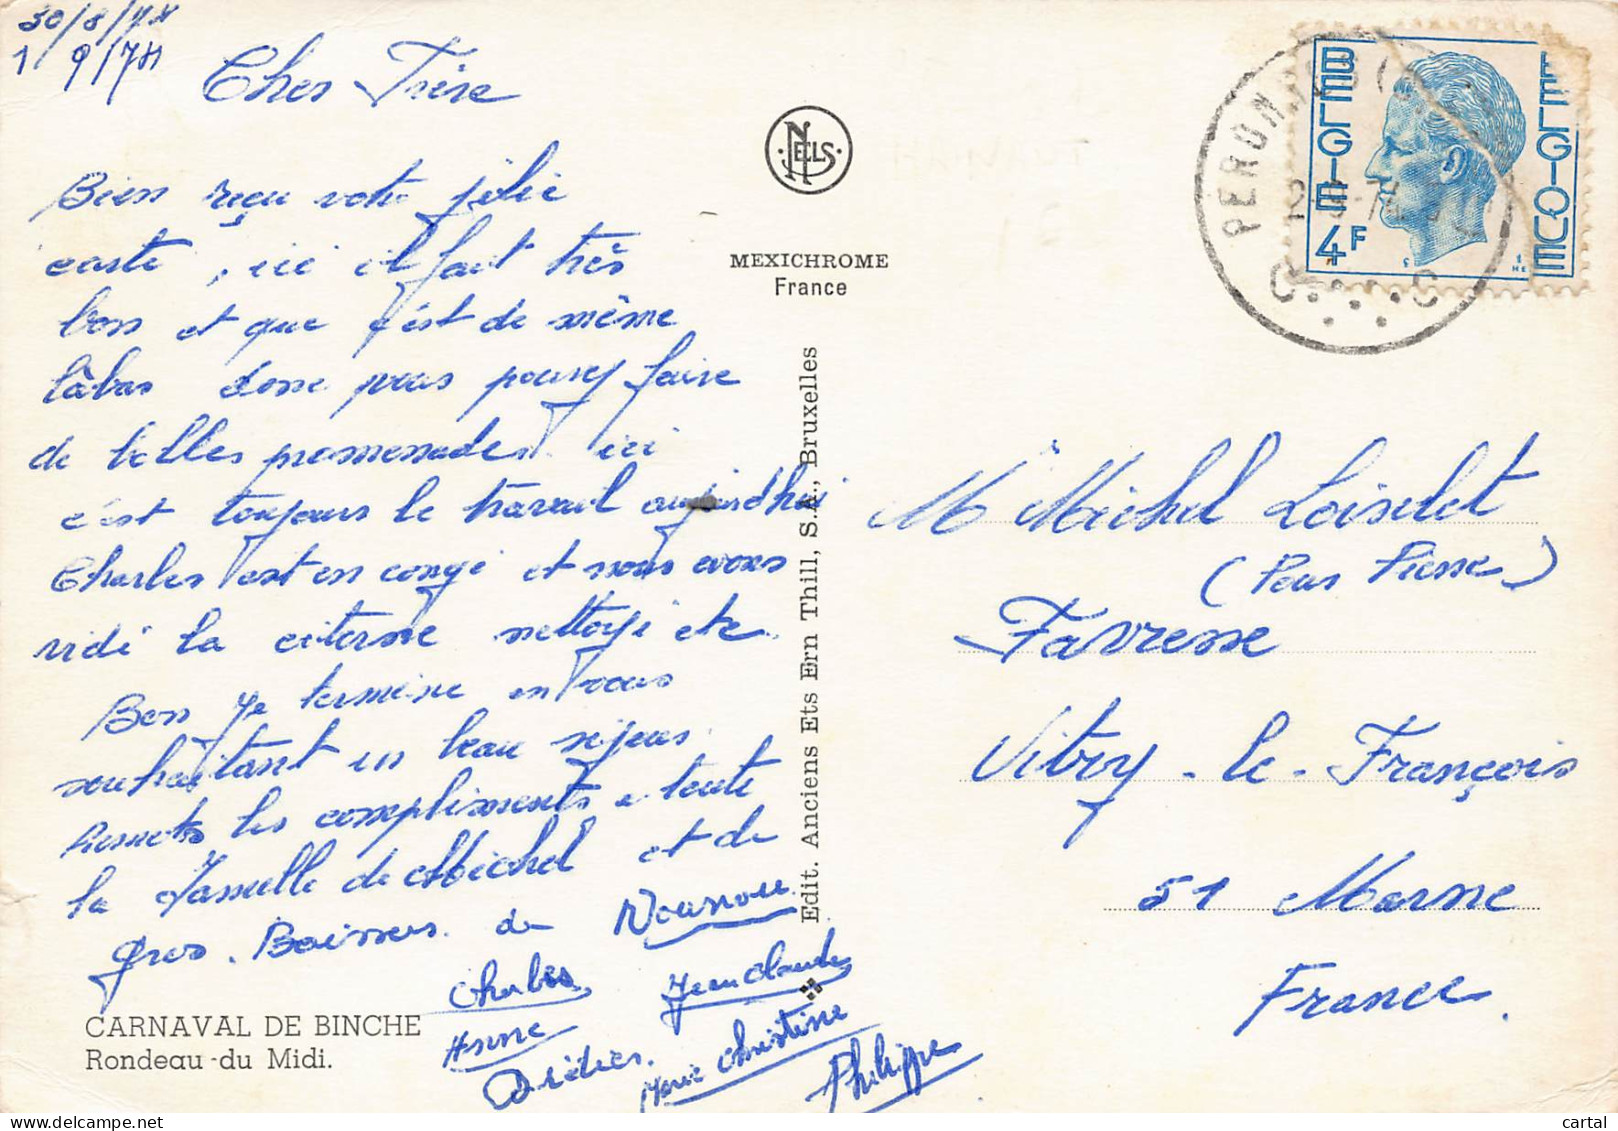 30/8/74
1/9/74
Cher Frère
Bien reçu votre jolie
carte, ici il fait très
bon et que c'est de même
làbas donc vous pouvez faire
de belles promenades. ici
c'est toujours le travail aujourd'hui
Charles est en congé et nous avons
vidé la citerne nettoyé etc.
Bon je termine en vous
souhaitant un beau séjour.
Remets les compliments a toute
la famille de Michel et de
gros. Baisers. de Nounou
Charles Jean Claude
Anne
Didier. Marie Christine
Philippe
CARNAVAL DE BINCHE
Rondeau du Midi.
NELS
MEXICHROME
France
Edit. Anciens Ets Ern Thill, S.A., Bruxelles
BELGIE BELGIQUE
4F
PERONNES
C C
Mr Michel Loiselet
(Pour Pierre)
Favresse
Vitry-le-François
51 Marne
France.
cartal